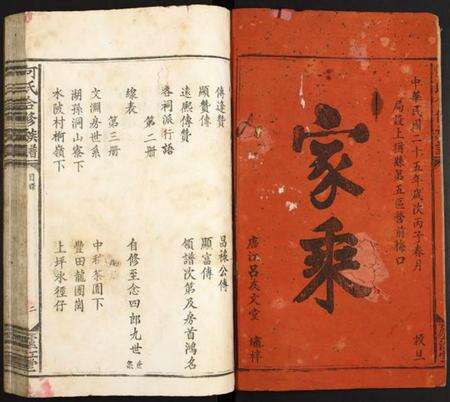 中華民國二十五年歲次丙子春月
局設上猶縣第五區營前梅口
家乘
廬江呂友文堂
穀旦
傳達贊
顯贊傳
遠熙傳贊
各祠派行語
第二册
昌祿公傳
顯富傳
領譜次第及房首鴻名
線表
第三册
自修至念四郎九世
文淵房世系
中和茶園下
湖孫洞山寮下
豐田龍圍崗
水陂村桐嶺下
上坪水徑仔
何氏合修族譜
目録
二